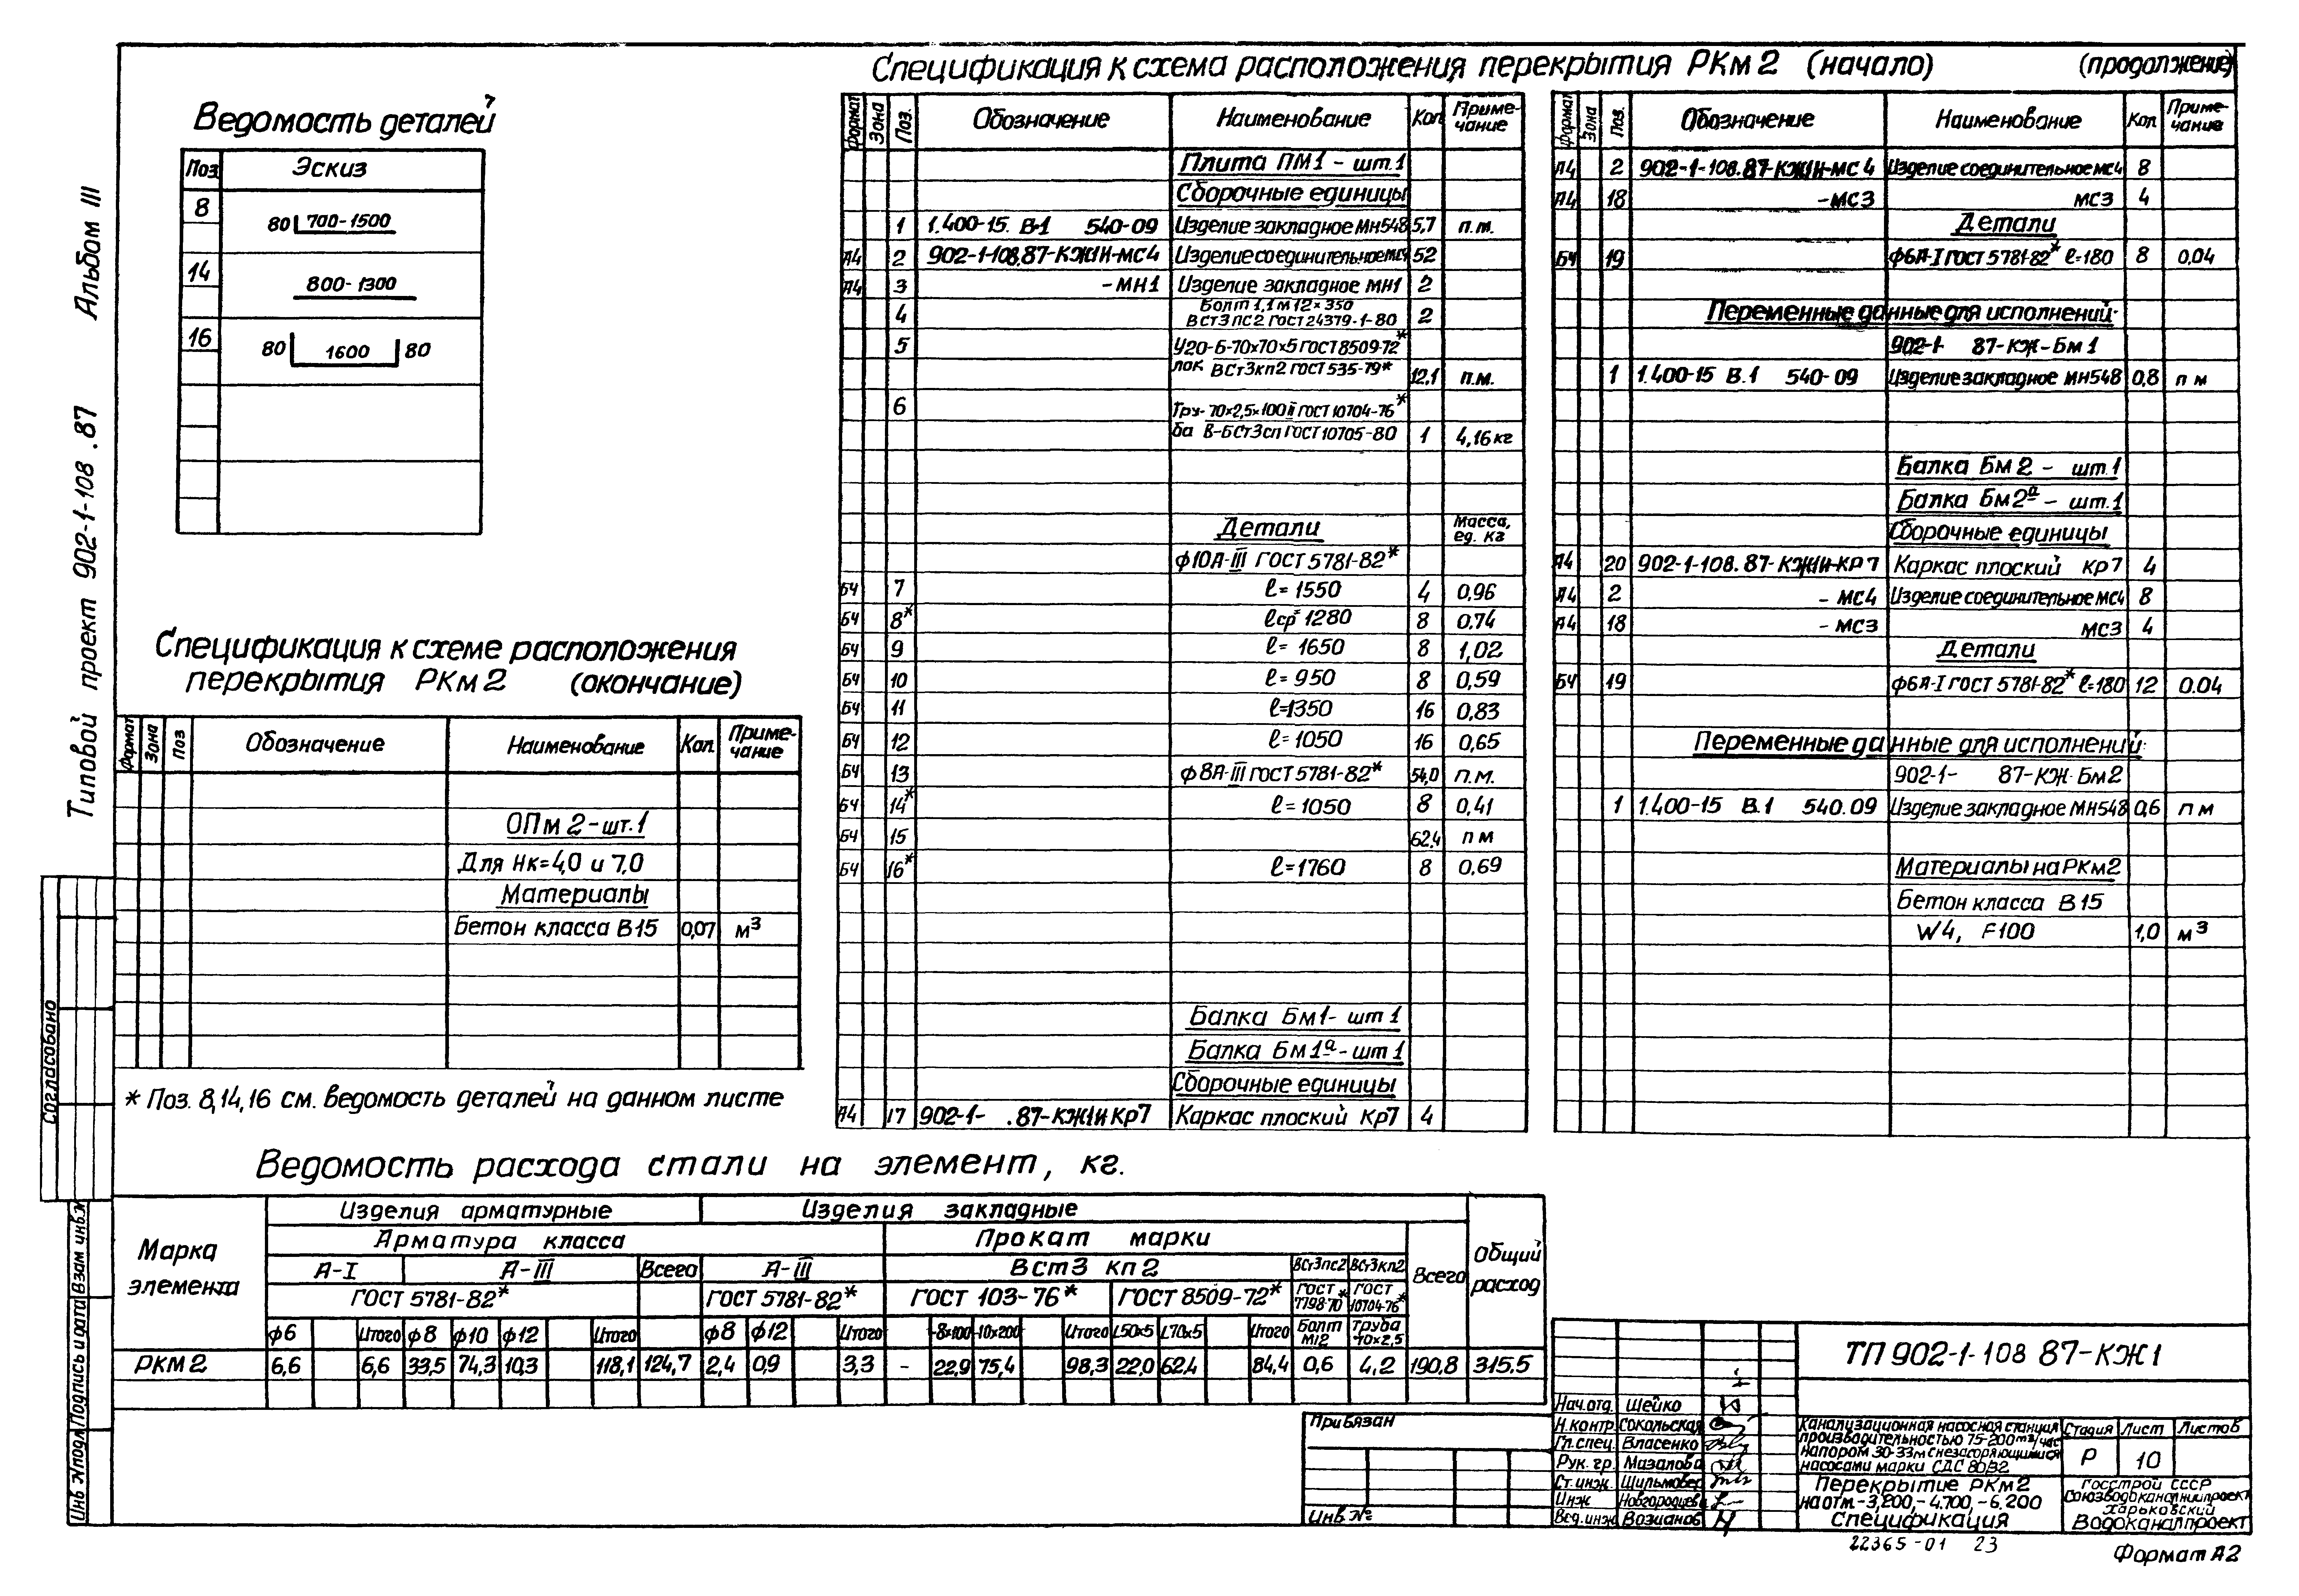 Типовой проект 902-1-108.87 Альбом III
Ведомость деталей
Поз Эскиз
8 80 700-1500
14 800-1300
16 80 1600 80
Спецификация к схеме расположения
перекрытия РКм 2 (окончание)
Формат Зона Поз Обозначение Наименование Кол. Приме-
чание
ОПм 2-шт.1
Для Нк=4,0 и 7,0
Материалы
Бетон класса В15 0,07 м³
* Поз. 8,14,16 см. ведомость деталей на данном листе
Спецификация к схема расположения перекрытия РКм 2 (начало)
Формат Зона Поз. Обозначение Наименование Кол Приме-
чание
Плита ПМ1 - шт.1
Сборочные единицы
1 1.400-15. В-1 540-09 Изделие закладное МН548 5,7 п.м.
А4 2 902-1-108.87-КЖIИ-МС4 Изделие соединительное МС4 52
А4 3 -МН1 Изделие закладное МН1 2
4 Болт 1,1 м 12×350
ВСт3 пс2 ГОСТ 24379-1-80 2
5 У20-Б-70×70×5 ГОСТ 8509-72*
лок ВСт3кп2 ГОСТ 535-79* 12,1 п.м.
6 Тру- 70×2,5×100 II ГОСТ 10704-76*
ба В-БСт3сп ГОСТ 10705-80 1 4,16 кг
Детали Масса,
ед. кг
ф10А-III ГОСТ 5781-82*
БЧ 7 ℓ= 1550 4 0,96
БЧ 8* ℓср= 1280 8 0,74
БЧ 9 ℓ= 1650 8 1,02
БЧ 10 ℓ= 950 8 0,59
БЧ 11 ℓ=1350 16 0,83
БЧ 12 ℓ= 1050 16 0,65
БЧ 13 ф8А-III ГОСТ 5781-82* 54,0 п.м.
БЧ 14* ℓ= 1050 8 0,41
БЧ 15 62,4 п м
БЧ 16* ℓ=1760 8 0,69
Балка Бм1- шт 1
Балка Бм1ª-шт 1
Сборочные единицы
А4 17 902-1- .87-КЖIИ Кр7 Каркас плоский Кр7 4
(продолжение)
Формат Зона Поз. Обозначение Наименование Кол Приме-
чание
А4 2 902-1-108.87-КЖIИ-МС4 Изделие соединительное МС4 8
А4 18 -МС3 МС3 4
Детали
БЧ 19 ф6А-I ГОСТ 5781-82* ℓ=180 8 0,04
Переменные данные для исполнений:
902-1- 87-КЖ-Бм1
1 1.400-15 В.1 540-09 Изделие закладное МН548 0,8 п м
Балка Бм 2 - шт.1
Балка Бм2ª - шт.1
Сборочные единицы
А4 20 902-1-108.87-КЖIИ-КР7 Каркас плоский Кр7 4
А4 2 - МС4 Изделие соединительное МС4 8
А4 18 -МС3 МС3 4
Детали
БЧ 19 ф6А-I ГОСТ 5781-82* ℓ=180 12 0.04
Переменные данные для исполнений:
902-1- 87-КЖ-Бм2
1 1.400-15 В.1 540.09 Изделие закладное МН548 0,6 п м
Материалы на РКм2
Бетон класса В15
W4, F100 1,0 м³
Ведомость расхода стали на элемент, кг.
Марка
элемента
Изделия арматурные Изделия закладные Общий
расход
Арматура класса Прокат марки
А-I А-III Всего А-III ВСт3 кп2 ВСт3пс2 ВСт3кп2 Всего
ГОСТ 5781-82* ГОСТ 5781-82* ГОСТ 103-76* ГОСТ 8509-72* ГОСТ 7798-70* ГОСТ 10704-76*
ф6 Итого ф8 ф10 ф12 Итого ф8 ф12 Итого -8×100 -10×200 Итого L50×5 L70×5 Итого Болт М12 Труба 70×2,5
РКМ 2 6,6 6,6 33,5 74,3 10,3 118,1 124,7 2,4 0,9 3,3 - 22,9 75,4 98,3 22,0 62,4 84,4 0,6 4,2 190,8 315,5
Согласовано
Инв № подл Подпись и дата Взам инв.№
Привязан
Инв №
ТП 902-1-108 87-КЖ1
Нач.отд. Шейко
Н.контр. Сокольская
Гл.спец. Власенко
Рук. гр. Мазалова
Ст.инж.
Инж
Вед.инж Возианов
Канализационная насосная станция
производительностью 75-200 м³/час
напором 30-33м с незасоряющимися
насосами марки СДС 80/32
Стадия Лист Листов
Р 10
Перекрытие РКм2
на отм -3,200,-4.700,-6,200
Спецификация
Госстрой СССР
Союзводоканалниипроект
Харьковский
Водоканалпроект
22365-01 23
Формат А2